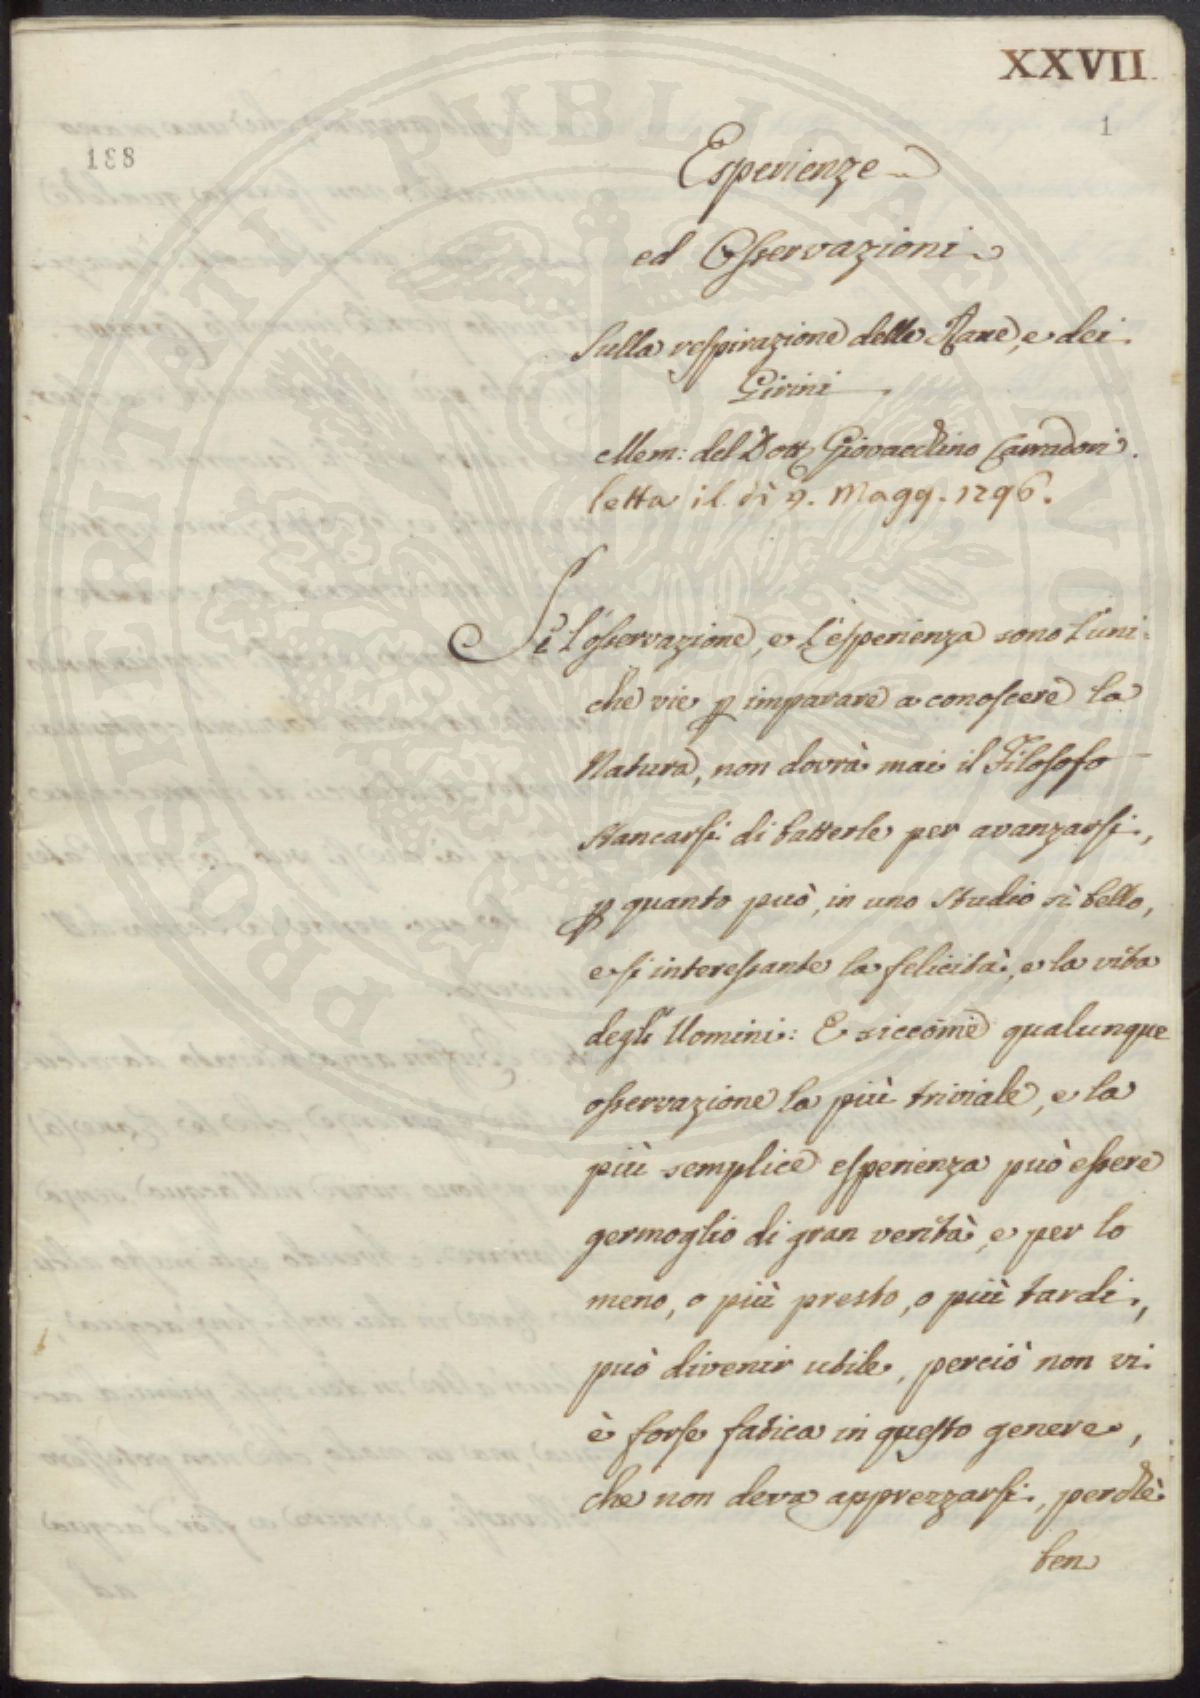 XXVII.
1
188
Esperienze
ed Osservazioni
Sulla respirazione delle Rane, e dei
Girini
Mem: del Dott Giovacchino Carradori.
letta il dì 9. Magg. 1796.
Se l'osservazione, e l'esperienza sono l'uni-
che vie p imparare a conoscere la
Natura, non dovrà mai il Filosofo
stancarsi di batterle per avanzarsi,
p quanto può, in uno studio sì bello,
e si interessante la felicità, e la vita
degli Uomini: E siccome qualunque
osservazione la più triviale, e la
più semplice esperienza può essere
germoglio di gran verità, e per lo
meno, o più presto, o più tardi,
può divenir utile, perciò non vi
è forse fatica in questo genere,
che non deva apprezzarsi, perchè
ben
POSTERITATI PVBLICAE